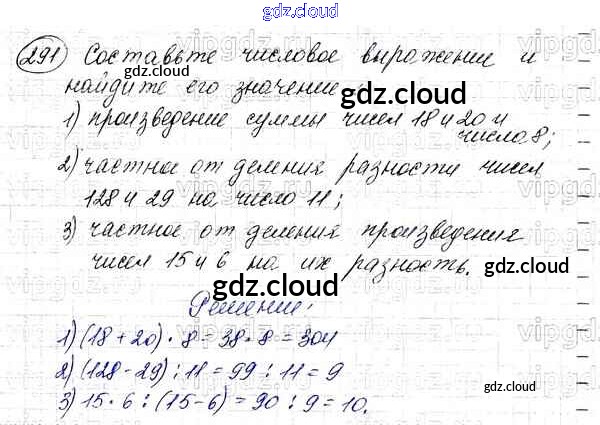 gdz.cloud
291 Составьте числовое выражении и
найдите его значение:
gdz.cloud
1) произведение суммы чисел 18 и 20 и
числа 8;
gdz.cloud
2) частное от деления разности чисел
128 и 29 на число 11;
3) частное от деления произведения
чисел 15 и 6 на их разность.
gdz.cloud
gdz.cloud
Решение:
1) (18 + 20) · 8 = 38 · 8 = 304
2) (128 - 29) : 11 = 99 : 11 = 9
gdz.cloud
3) 15 · 6 : (15 - 6) = 90 : 9 = 10.
gdz.cloud